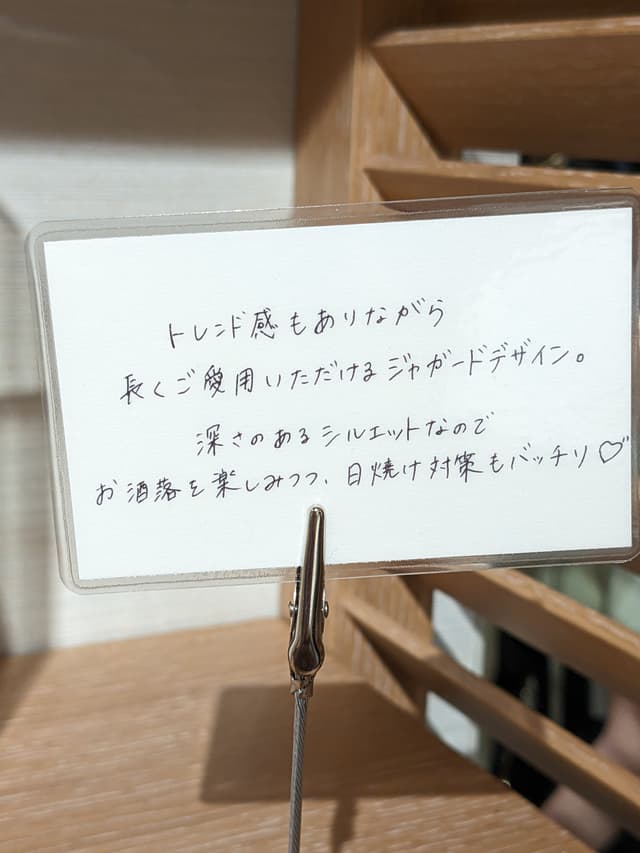 トレンド感もありながら
長くご愛用いただけるジャガードデザイン。
深さのあるシルエットなので
お洒落を楽しみつつ、日焼け対策もバッチリ♡